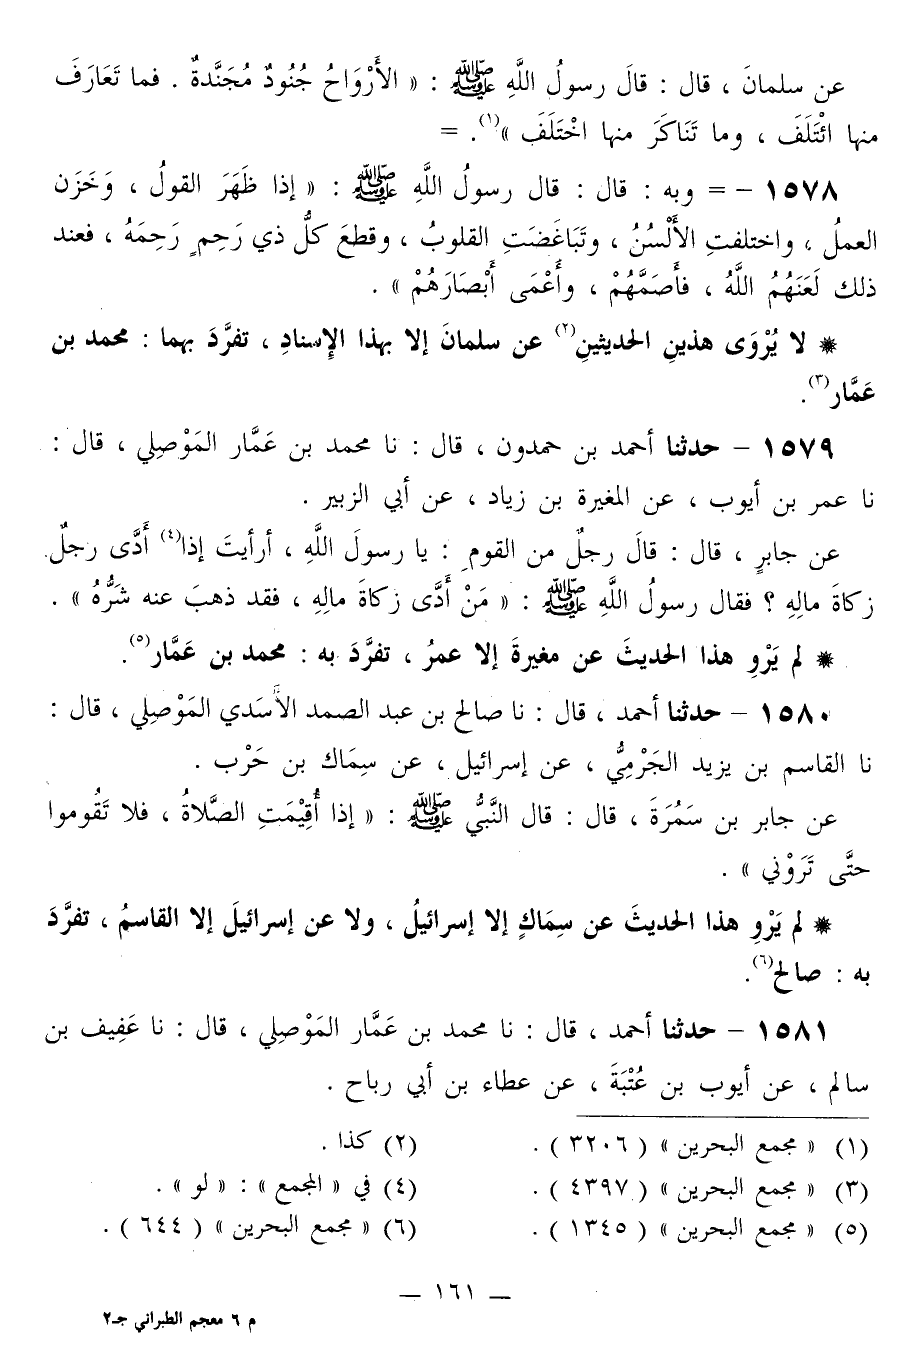 عن سلمانَ ، قال : قالَ رسولُ اللَّهِ ﷺ : « الأَرْوَاحُ جُنُودٌ مُجَنَّدةٌ . فما تَعَارَفَ
منها ائْتَلَفَ ، وما تَنَاكَرَ منها اخْتَلَفَ »(١). =
١٥٧٨ – = وبه : قال : قال رسولُ اللَّهِ ﷺ : « إذا ظَهَرَ القولُ ، وَخَزَن
العملُ ، واختلفتِ الأَلْسُنُ ، وتَبَاغَضَتِ القلوبُ ، وقطعَ كلُّ ذي رَحِمٍ رَحِمَهُ ، فعند
ذلك لَعَنَهُمُ اللَّهُ ، فأَصَمَّهُمْ ، وأَعْمَى أَبْصَارَهُمْ » .
* لا يُرْوَى هذينِ الحديثينِ(٢) عن سلمانَ إلا بهذا الإِسنادِ ، تفرَّدَ بهما : محمد بن
عَمَّار(٣).
١٥٧٩ – حدثنا أحمد بن حمدون ، قال : نا محمد بن عَمَّار المَوْصِلي ، قال :
نا عمر بن أيوب ، عن المغيرة بن زياد ، عن أبي الزبير .
عن جابرٍ ، قال : قالَ رجلٌ من القومِ : يا رسولَ اللَّهِ ، أرأيتَ إذا(٤) أَدَّى رجلٌ
زكاةَ مالِهِ ؟ فقال رسولُ اللَّهِ ﷺ : « مَنْ أَدَّى زكاةَ مالِهِ ، فقد ذهبَ عنه شَرُّهُ » .
* لم يَرْوِ هذا الحديثَ عن مغيرةَ إلا عمرُ ، تفرَّدَ به : محمد بن عَمَّار(٥).
١٥٨٠ – حدثنا أحمد ، قال : نا صالح بن عبد الصمد الأَسَدي المَوْصِلي ، قال :
نا القاسم بن يزيد الجَرْمِيُّ ، عن إسرائيل ، عن سِمَاك بن حَرْب .
عن جابر بن سَمُرَةَ ، قال : قال النَّبيُّ ﷺ : « إذا أُقِيْمَتِ الصَّلاةُ ، فلا تَقُوموا
حتَّى تَرَوْني » .
* لم يَرْوِ هذا الحديثَ عن سِمَاكٍ إلا إسرائيلُ ، ولا عن إسرائيلَ إلا القاسمُ ، تفرَّدَ
به : صالح(٦).
١٥٨١ – حدثنا أحمد ، قال : نا محمد بن عَمَّار المَوْصِلي ، قال : نا عَفِيف بن
سالم ، عن أيوب بن عُتْبَةَ ، عن عطاء بن أبي رباح .
(١) « مجمع البحرين » ( ٣٢٠٦ ) . (٢) كذا .
(٣) « مجمع البحرين » ( ٤٣٩٧ ) . (٤) في « المجمع » : « لو » .
(٥) « مجمع البحرين » ( ١٣٤٥ ) . (٦) « مجمع البحرين » ( ٦٤٤ ) .
— ١٦١ —
م ٦ معجم الطبراني جـ٢